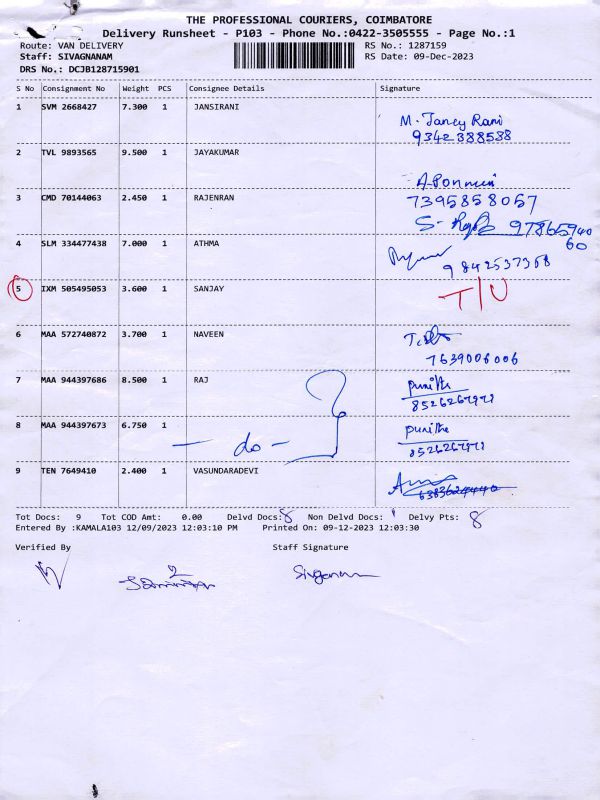 THE PROFESSIONAL COURIERS, COIMBATORE
Delivery Runsheet - P103 - Phone No.:0422-3505555 - Page No.:1
Route: VAN DELIVERY RS No.: 1287159
Staff: SIVAGNANAM RS Date: 09-Dec-2023
DRS No.: DCJB128715901
S No Consignment No Weight PCS Consignee Details Signature
1 SVM 2668427 7.300 1 JANSIRANI
M. Jancy Rani
9342388538
2 TVL 9893565 9.500 1 JAYAKUMAR
7395858057
3 CMD 70144063 2.450 1 RAJENRAN
9786594060
4 SLM 334477438 7.000 1 ATHMA
9842537368
5 IXM 505495053 3.600 1 SANJAY T/U
6 MAA 572740872 3.700 1 NAVEEN
7639006006
7 MAA 944397686 8.500 1 RAJ punitha
8 MAA 944397673 6.750 1 punitha
- do -
9 TEN 7649410 2.400 1 VASUNDARADEVI
Tot Docs: 9 Tot COD Amt: 0.00 Delvd Docs: 8 Non Delvd Docs: 1 Delvy Pts: 8
Entered By :KAMALA103 12/09/2023 12:03:10 PM Printed On: 09-12-2023 12:03:30
Verified By Staff Signature